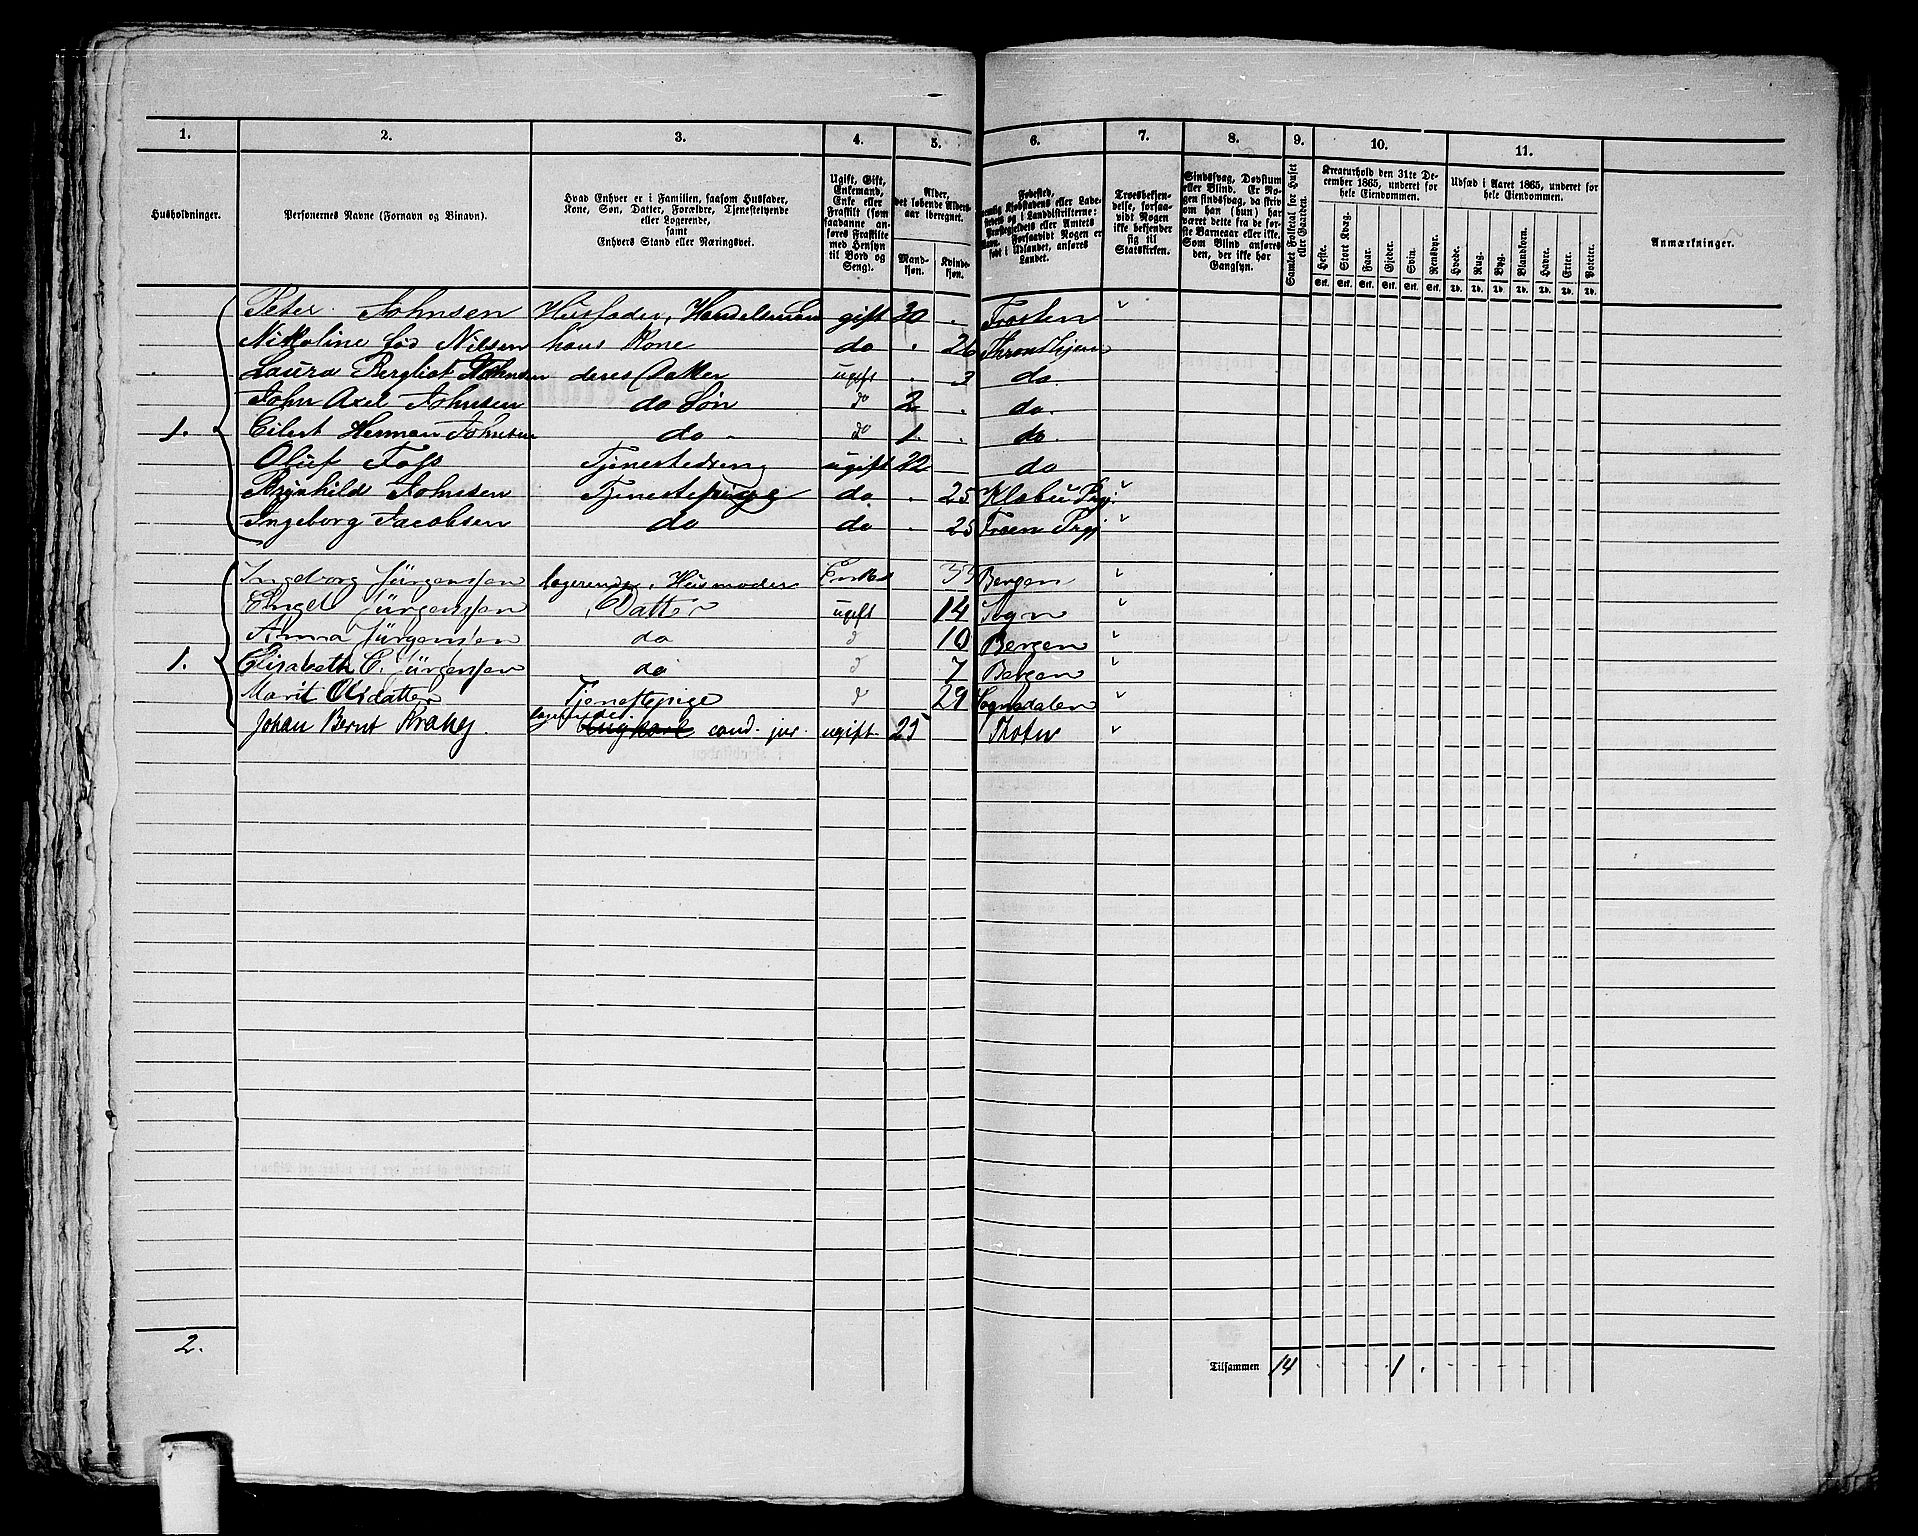 1. 2. 3. 4. 5. 6. 7. 8. 9. 10. 11.
Husholdninger.
Personernes Navne (Fornavn og Binavn).
Hvad Enhver er i Familien, saasom Husfader,
Kone, Søn, Datter, Forældre, Tjenestetyende
eller Logerende,
samt
Enhvers Stand eller Næringsvei.
Ugift, Gift,
Enkemand,
Enke eller
Fraskilt (som
saadanne an-
føres Fraskilte
med Hensyn
til Bord og
Seng).
Alder,
det løbende Alders-
aar iberegnet.
Mand-
kjøn.
Kvinde-
kjøn.
Fødested,
nemlig Kjøbstadens eller Lade-
stedets og i Landdistrikterne:
Præstegjeldets eller Amtets
Navn. Forsaavidt Nogen er
født i Udlandet, anføres
Landet.
Troesbekjen-
delse, forsaa-
vidt Nogen
ikke bekjender
sig til
Statskirken.
Sindssvag, Døvstum
eller Blind. Er No-
gen sindssvag, da skriv
om han (hun) har
været dette fra de før-
ste Barneaar eller ikke.
Som Blind anføres
den, der ikke har
Gangsyn.
Samlet Folketal for Huset
eller Gaarden.
Kreaturhold den 31te De-
cember 1865, underet for
hele Eiendommen.
Heste. Stort Kvæg. Faar. Gjeder. Svin. Rensdyr.
Stk. Stk. Stk. Stk. Stk. Stk.
Udsæd i Aaret 1865, underet for
hele Eiendommen.
Hvede. Rug. Byg. Blandkorn. Havre. Erter. Poteter.
Td. Td. Td. Td. Td. Td. Td.
Anmærkninger.
Peter Johnsen Husfader, Handelsmann gift 30 . Frosten "
Nikoline Nilsen hans Kone do . 26 Throndhjem
Laura Bergliot Johnsen deres Datter ugift . 3 do.
John Axel Johnsen do Søn do 2 . do.
1. Eilert Herman Johnsen do . do 1. . do.
Oluf Foss Tjenestedreng ugift 22 do
Brynhild Johnsen Tjenestepige do . 25 Klæbu Prgj. "
Ingeborg Jacobsen do do . 25 Prgj "
Ingeborg Jürgenssen logerende, Husmoder Enke Bergen "
Engel Jürgenssen Datter ugift 14 Sogn "
Anna Jürgenssen do d 10 Bergen "
1. Elisabeth C. Jürgenssen do d 7 Bergen "
Marit Olsdatter Tjenestepige d 29 Sognsdalen "
Johan Bernt Krabej. logerende cand. jur. ugift 25 Thoten "
2.
Tilsammen 14 . . . 1 . . . . .